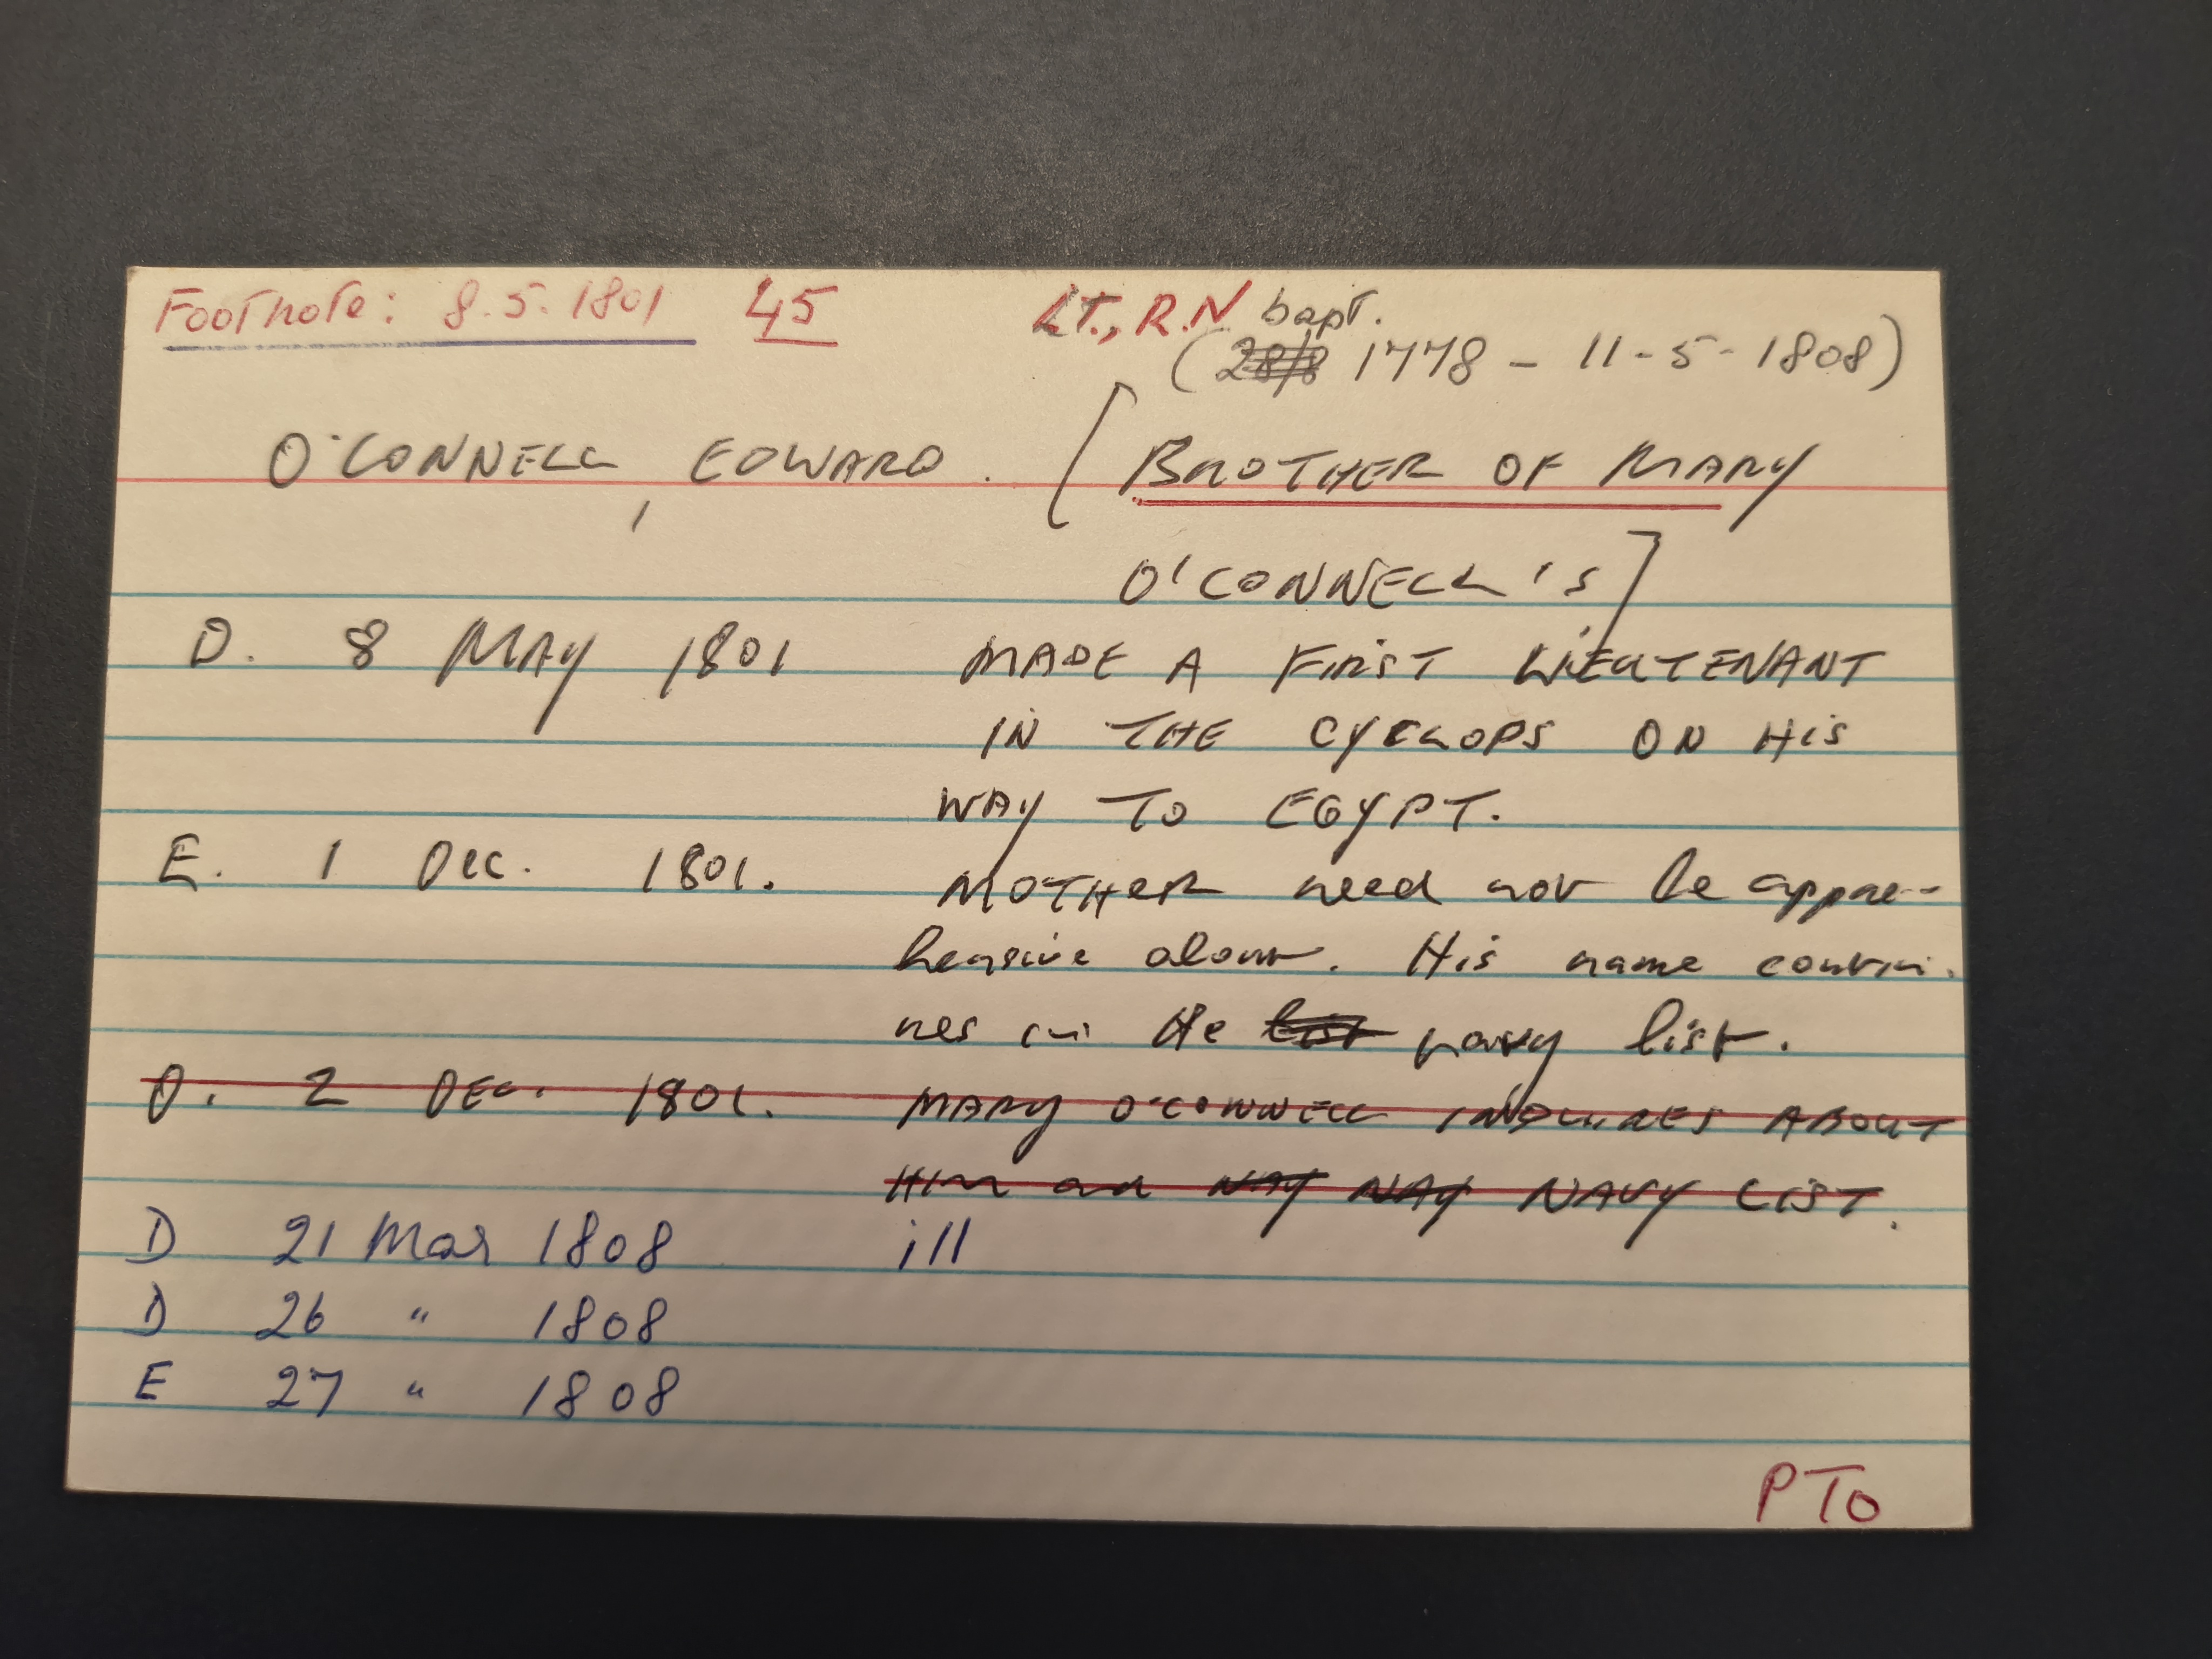 Footnote: 8.5.1801 45 LT., R.N. bapt.
(28/8 1778 - 11-5-1808)
O'CONNELL, EDWARD. [BROTHER OF MARY
O'CONNELL'S]
D. 8 MAY 1801 MADE A FIRST LIEUTENANT
IN THE CYCLOPS ON HIS
WAY TO EGYPT.
E. 1 Dec. 1801. MOTHER need not be appre-
hensive about. His name contin-
nes in the list navy list.
D. 2 DEC. 1801. MARY O'CONNELL INQUIRES ABOUT
HIM and NAY NAY NAVY LIST.
D 21 Mar 1808 ill
D 26 " 1808
E 27 " 1808
PTO